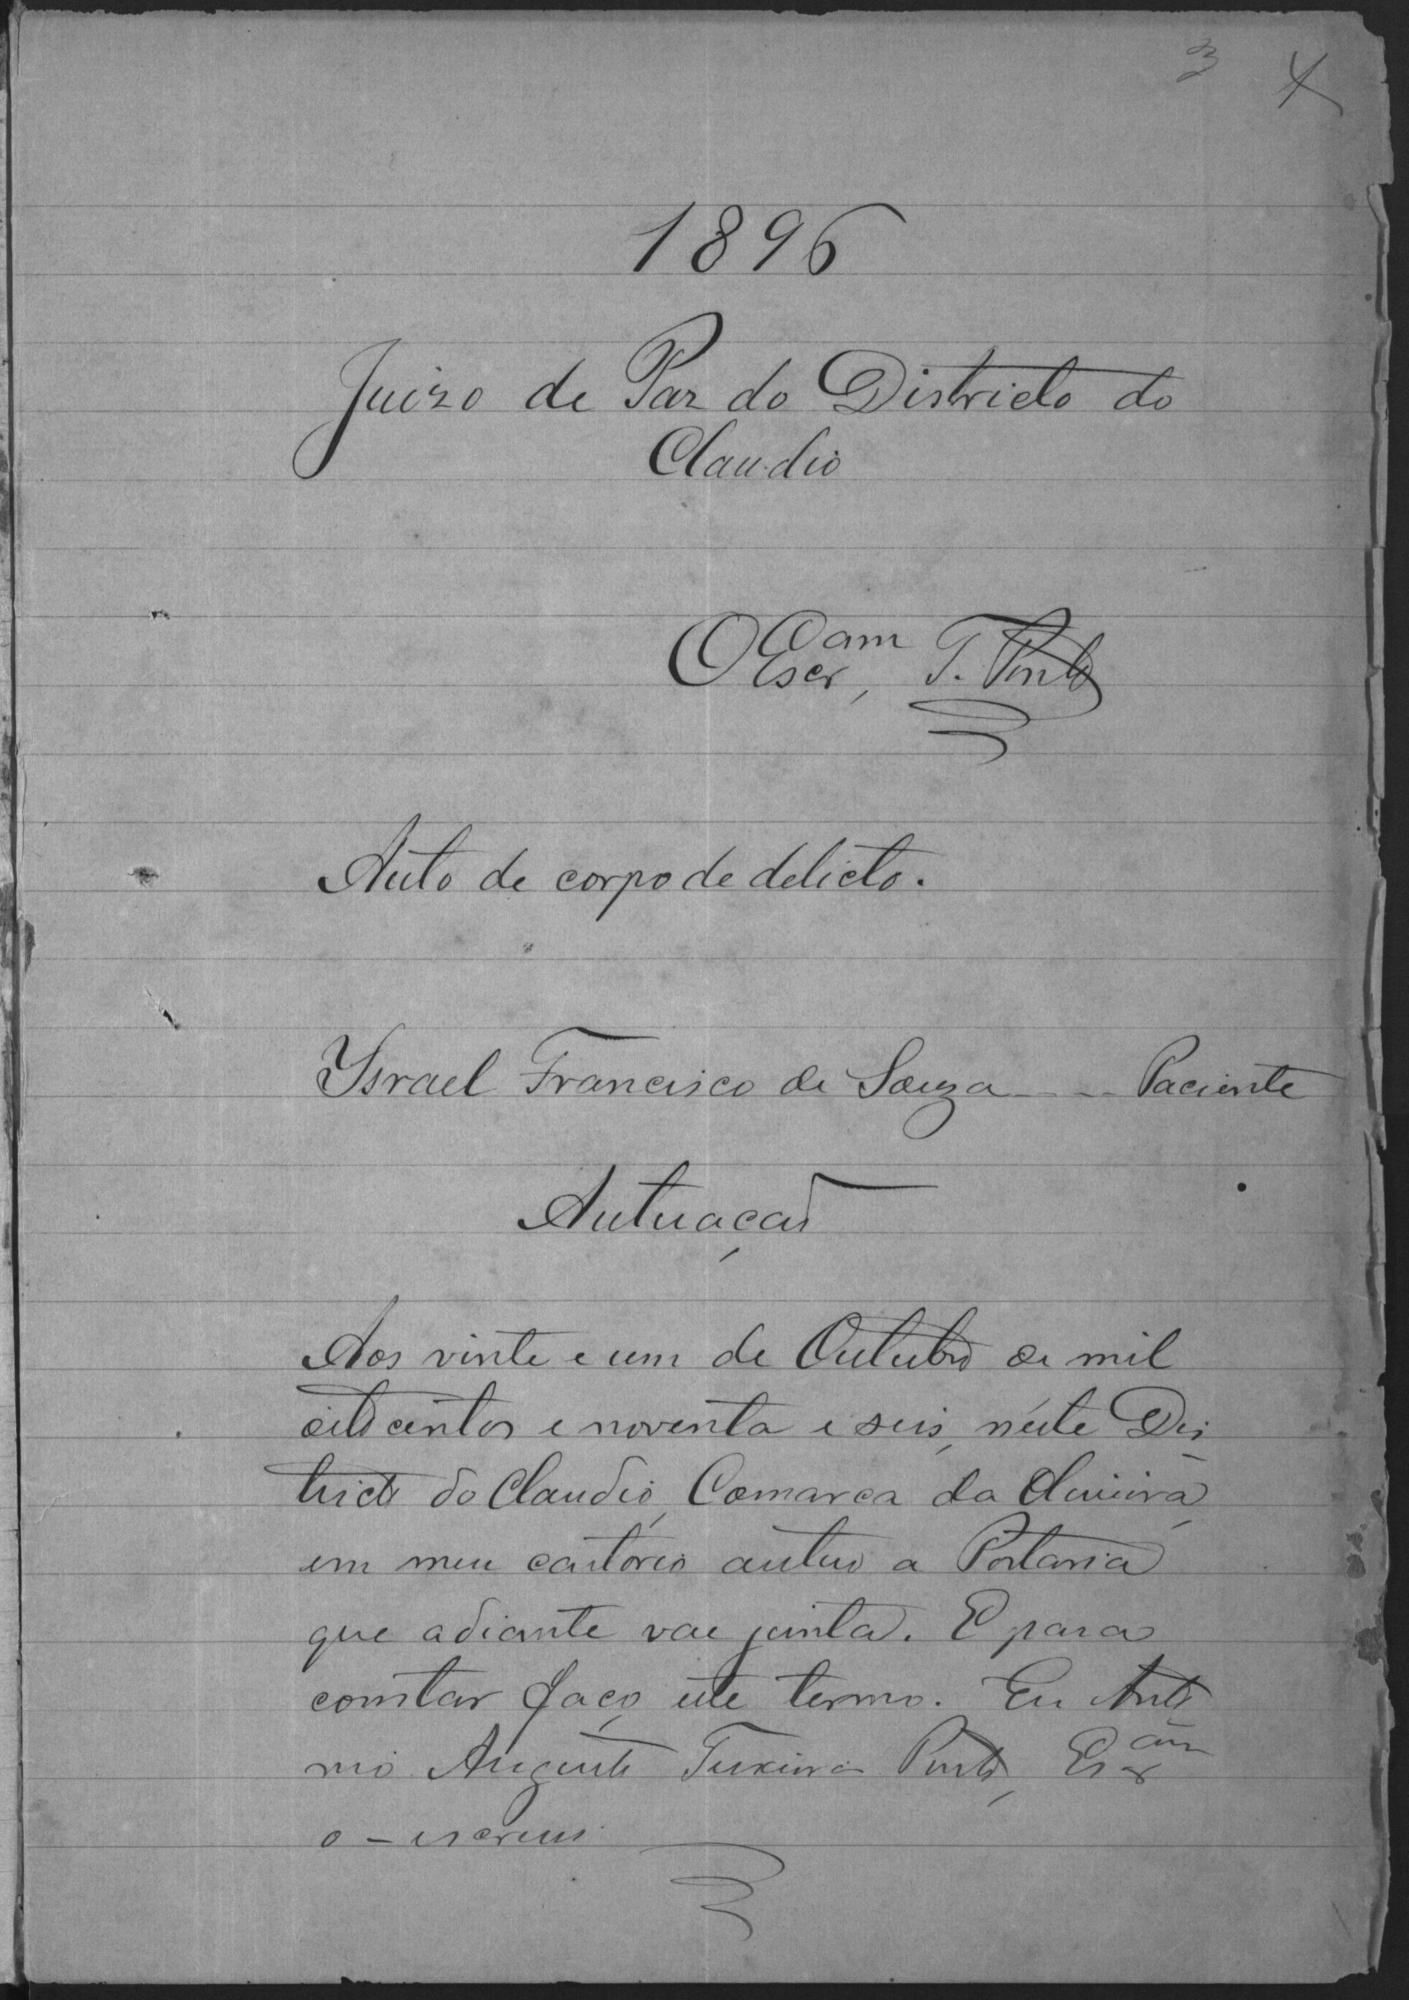 3 4
1896
Juizo de Paz do Districto do
Claudio
O Escr.am T. Pinto
Auto de corpo de delicto.
Ysrael Francisco de Souza ---- Paciente
Autuaçaõ
Aos vinte e um de Outubro de mil
oitocentos e noventa e seis, néste Dis
tricto do Claudio, Comarca da Oliveira,
em meu cartório autuo a Portaria
que adiante vae junta. E para
constar faço este termo. Eu Anto
nio Augusto Teixeira Pinto, Escr.am
o - escrevi